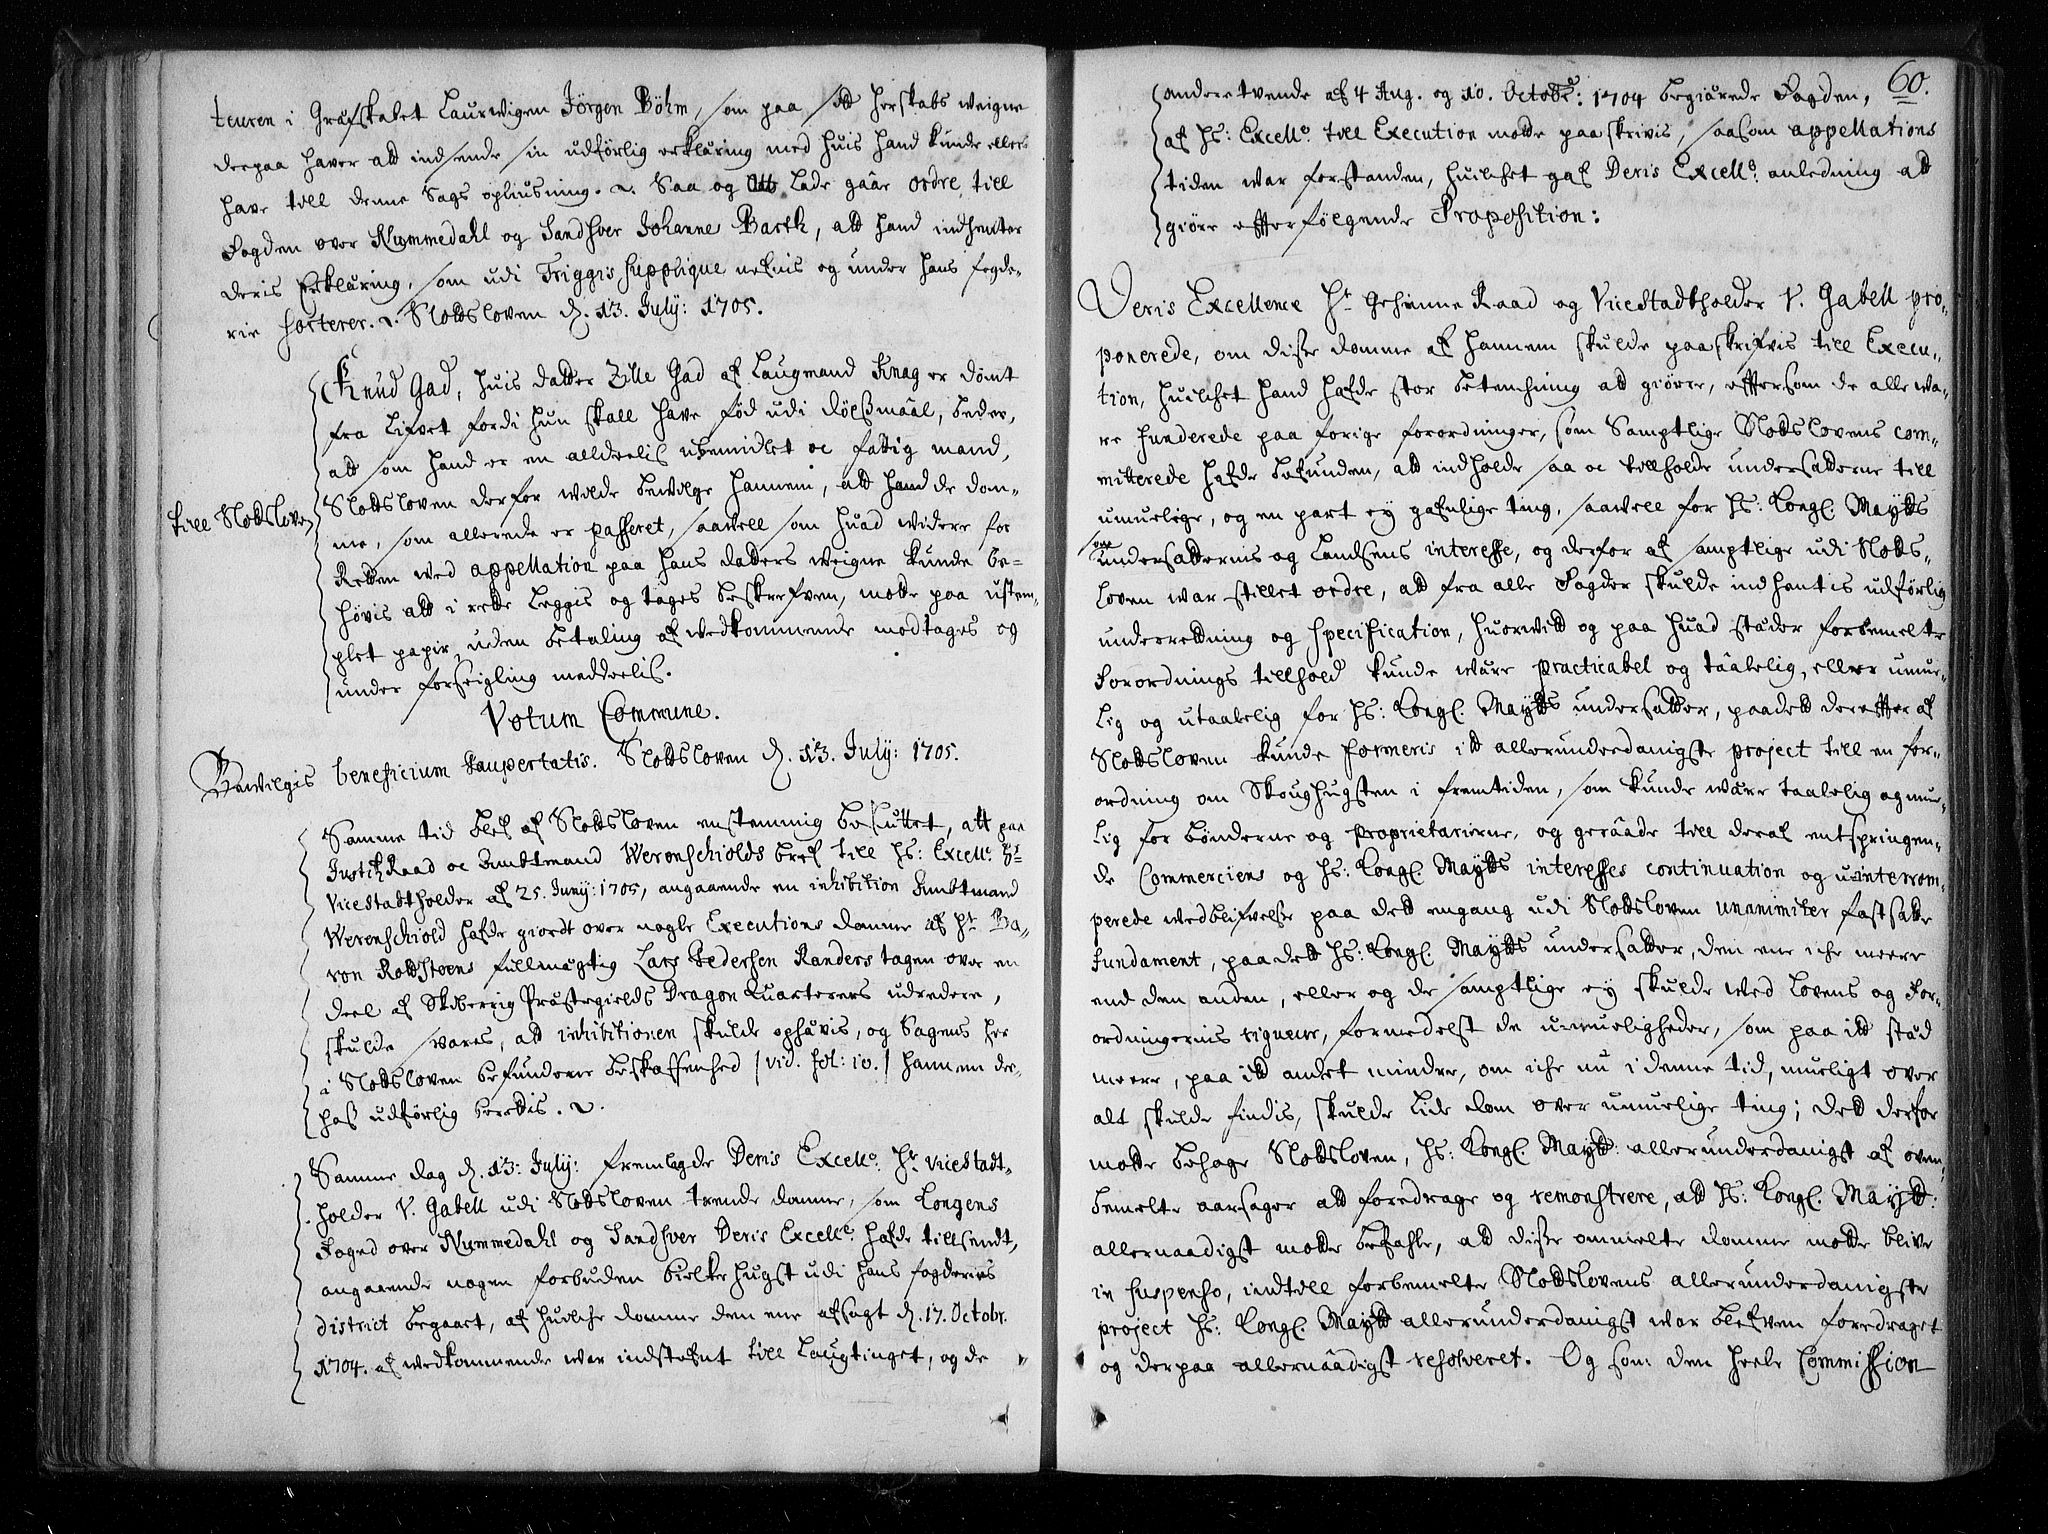 teuren i Grafskabet Laurwigen Jörgen Böhm, som paa sitt herskabs weigne
derpaa haver att indsende sin udförlig erklæring med huis hand kunde eller
have till denne Sags opliusning. Saa og lade gaar ordre till
Fogden over Nummedahl og Sandsver Johanne Barth, att hand indhenter
deris Erklæring, som udi Triggis Supplique nefnis og under hans fogde-
rie sorterer. Slottsloven d. 13. July: 1705.
Knud Gad, huis datter Zille Gad af Laugmand Knag er dömt
fra Lifvet fordi hun skall have fød udi dölgsmaal, beder,
att som hand er en alldeelis ubemidlet oc fattig mand,
till Slottsloven
Slottsloven derfor wilde bewilge hannem, att hand de dom-
me, som allerede er passeret, saavell som huad widere for
Retten wed appellation paa hans datters weigne kunde be-
høvis att i rette leggis og tages beskrefven, motte paa ustem-
plet papir, uden betaling af wedkommende modtages og
under forseigling meddeelis.
Votum Commune.
Bewilgis beneficium paupertatis. Slottsloven d. 13. July: 1705.
Samme tid blef af Slottsloven enstemmig besluttet, att paa
JustitzRaad oc Ambtmand Werenschiolds bref till Hs: Excell: Hr
ViceStadtholder af 25. Juny: 1705, angaaende en inhibition Ambtmand
Werenschiold hafde giordt over nogle Executions domme af Hr Ba-
ron Rottsteens fullmægtig Lars Pedersen Randers tagen over en
deel af Skiberrig Præstegields Dragon Quarterers udredere,
skulde svares, att inhibitionen skulde ophævis, og Sagens her
i Slottsloven befundene beskaffenhed /vid. fol: 10./ hannem der-
hos udförlig berettis.
Samme dag d. 13: July: fremlagde Deris Excell: Hr viceStadt-
holder V. Gabell udi Slottsloven trende domme, som Kongens
Foged over Nummedahl og Sandsver Deris Excell: hafde tillsendt,
angaaende nogen forbuden bielkehugst udi hans fogderies
district begaaet, af huilche domme den ene afsagt d. 17. Octobr.
1704. af wedkommende war indstefnt till Laugtinget, og de
60.
andre tvende af 4 Aug. og 10. Octobr: 1704 begiærede Fogden,
af Hs: Excell: till Execution motte paaskrivis, saasom appellations
tiden war forstanden, huilchet gaf Deris Excell: anledning att
giøre effterfølgende Proposition:
Deris Excellence Hr Geheime Raad og ViceStadtholder V. Gabell pro-
ponerede, om disse domme af hannem skulde paaskrifvis till Execu-
tion, huilchet hand hafde stor betenchning att giøre, effter som de alle wa-
re funderede paa forige forordninger, som Samptlige Slottslovens com-
mitterede hafde befunden, att indholde saa oc tillholde undersatterne till
umuelige, og en part ey gafnlige ting, saavell for Hs: Kongl. Maytts
som
undersatternis og Landsens interesse, og derfor af samptlige udi Slotts-
loven war stillet ordre, att fra alle Fogder skulde indhentis udförlig
underretning og specification, huorwitt og paa huad stæder forbemelte
forordnings tillhold kunde være practicabel og taalelig, eller umue-
lig og utaalelig for Hs: Kongl. Maytts undersatter, paadett dereffter af
Slottsloven kunde formeris itt allerunderdanigste project till en for-
ordning om Skoughugsten i fremtiden, som kunde være taalelig og mue-
lig for bønderne og proprietarierne, og geraade till deraf entspringen-
de Commerciens og Hs: Kongl. Maytts interesses continuation og uinterrom-
perede wedblifvelse paa dett engang udi Slottsloven unanimiter fastsatte
fundament, paa dett Hs: Kongl. Maytts undersatter, den ene iche meere
end den anden, eller og de samptlige ey skulde wed Lovens og For-
ordningernis rigueur, formedelst de umueligheder, som paa itt stæd
meere, paa itt andet mindre, om iche nu i denne tid, mueligt over
alt skulde findis, skulde lide dom over umuelige ting; dett derfor
motte behage Slottsloven, Hs: Kongl. Maytt: allerunderdanigst af oven-
bemelte aarsager att foredrage og remonstrere, att Hs: Kongl. Maytt:
allernaadigst motte befahle, att disse ommelte domme motte blive
in suspenso, indtill forbemelte Slottslovens allerunderdanigste
project Hs: Kongl. Maytt allerunderdanigst war blefven foredraget
og derpaa allernaadigst resolveret. Og som den heele Commission